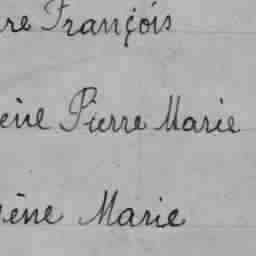 re François
ène Pierre Marie
gène Marie